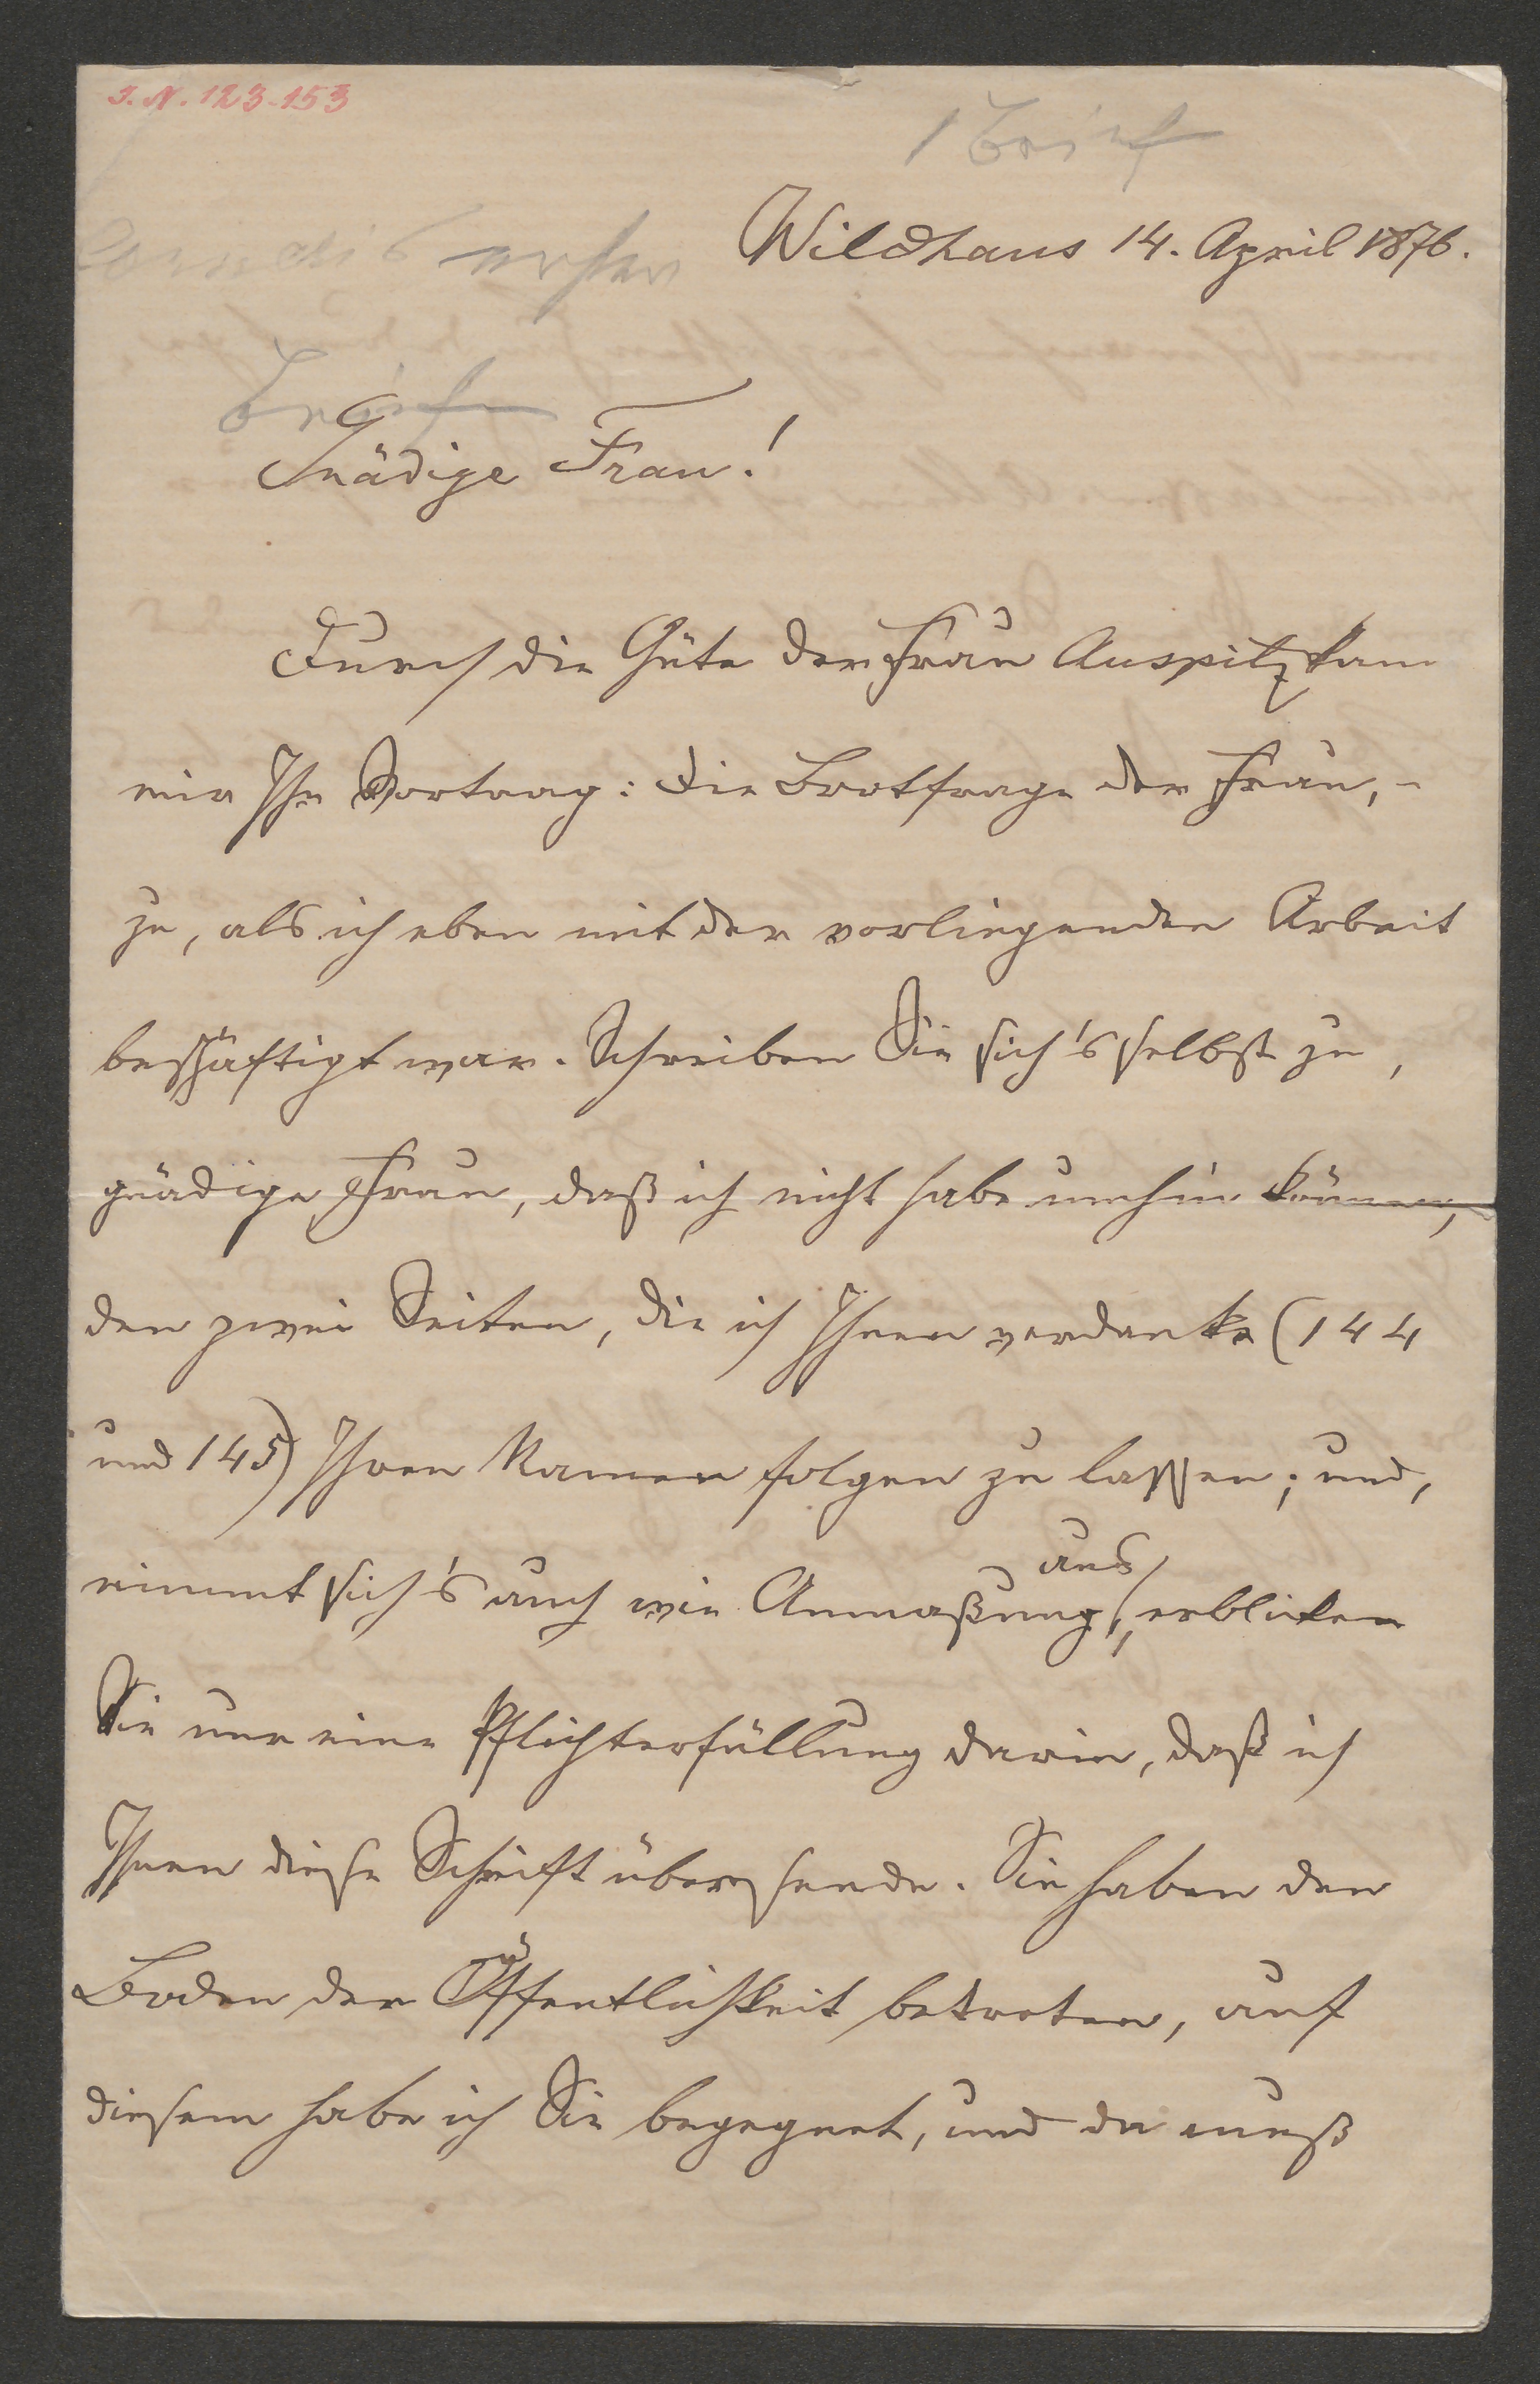 I. N. 123.153
1 Brief
Wildhaus 14. April 1876.
erster
Brief
Gnädige Frau!
Durch die Güte der Frau Auspitz kam
mir Ihr Vortrag: Die Brotfrage der Frau, -
zu, als ich eben mit der vorliegenden Arbeit
beschäftigt war. Schreiben Sie sich's selbst zu,
gnädige Frau, daß ich nicht habe umhin können,
den zwei Seiten, die ich Ihnen verdanke (144
und 145) Ihren Namen folgen zu lassen; und,
nimmt sich's auch wie Anmaßung aus, erblicken
Sie nur eine Pflichterfüllung darin, daß ich
Ihnen diese Schrift übersende. Sie haben den
Boden der Öffentlichkeit betreten, auf
diesem habe ich Sie begegnet, und da muß